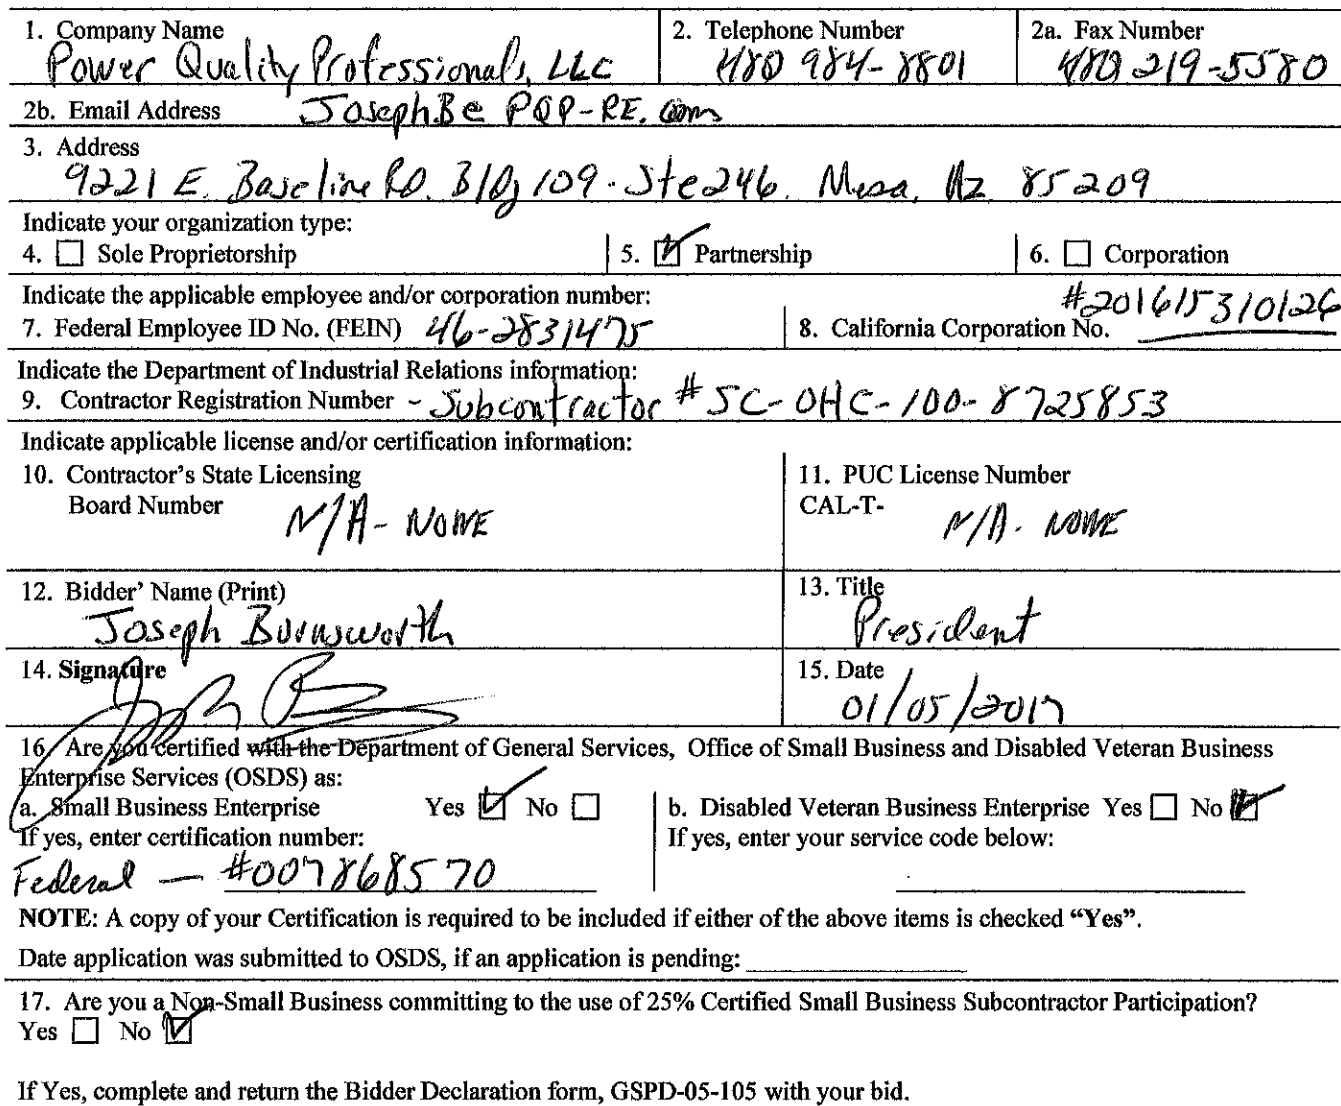 1. Company Name
Power Quality Professionals, LLC
2. Telephone Number
480 984-8801
2a. Fax Number
480 219-5580
2b. Email Address JosephB@PQP-RE.com
3. Address
9221 E. Baseline RD. Bldg 109 - Ste 246. Mesa, Az 85209
Indicate your organization type:
4. ☐ Sole Proprietorship 5. ☑ Partnership 6. ☐ Corporation
Indicate the applicable employee and/or corporation number:
7. Federal Employee ID No. (FEIN) 46-2831475
#201615310126
8. California Corporation No.
Indicate the Department of Industrial Relations information:
9. Contractor Registration Number - Subcontractor # SC-OHC-100-8725853
Indicate applicable license and/or certification information:
10. Contractor's State Licensing
Board Number
N/A - NONE
11. PUC License Number
CAL-T-
N/A - NONE
12. Bidder' Name (Print)
Joseph Burnsworth
13. Title
President
14. Signature
15. Date
01/05/2017
16. Are you certified with the Department of General Services, Office of Small Business and Disabled Veteran Business
Enterprise Services (OSDS) as:
a. Small Business Enterprise Yes ☑ No ☐
If yes, enter certification number:
Federal - #007868570
b. Disabled Veteran Business Enterprise Yes ☐ No ☑
If yes, enter your service code below:
NOTE: A copy of your Certification is required to be included if either of the above items is checked “Yes”.
Date application was submitted to OSDS, if an application is pending:
17. Are you a Non-Small Business committing to the use of 25% Certified Small Business Subcontractor Participation?
Yes ☐ No ☑
If Yes, complete and return the Bidder Declaration form, GSPD-05-105 with your bid.